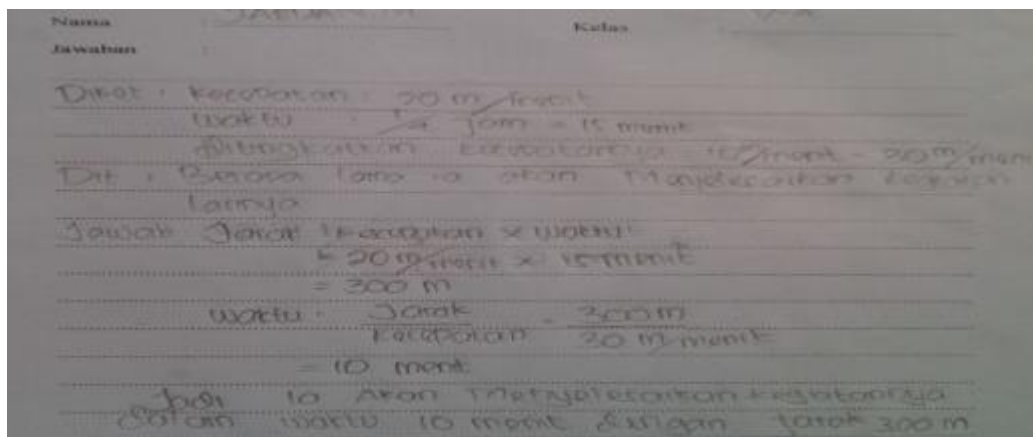 Nama : Kelas
Jawaban :
Diket : Kecepatan : 20 m/menit
waktu : 1/4 jam = 15 menit
Ditingkatkan kecepatannya = 10 m/menit = 30 m/menit
Dit : Berapa lama ia akan Menyelesaikan kegiatan
larinya
Jawab Jarak = Kecepatan x waktu
= 20 m/menit x 15 menit
= 300 m
waktu = Jarak / Kecepatan = 300 m / 30 m/menit
= 10 menit
Jadi ia Akan Menyelesaikan kegiatannya
dalam waktu 10 menit dengan jarak 300 m